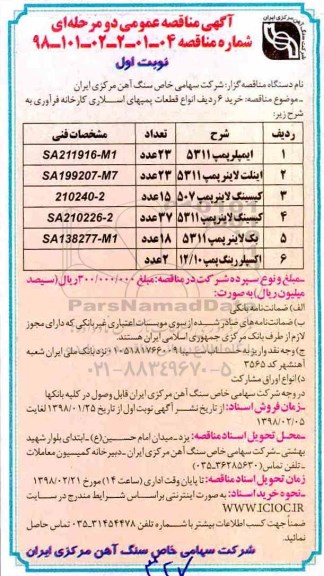 آگهی مناقصه عمومی دو مرحله‌ای
شماره مناقصه ۰۴-۰۱-۲-۰۲-۱۰۱-۹۸
شرکت سنگ آهن مرکزی ایران
نوبت اول
نام دستگاه مناقصه گزار: شرکت سهامی خاص سنگ آهن مرکزی ایران
- موضوع مناقصه: خرید ۶ ردیف انواع قطعات پمپهای اسلاری کارخانه فرآوری به
شرح زیر:
ردیف شرح تعداد مشخصات فنی
۱ ایمپلر پمپ ۵۳۱۱ ۲۳عدد SA211916-M1
۲ اینلت لاینر پمپ ۵۳۱۱ ۲۳عدد SA199207-M7
۳ کیسینگ لاینر پمپ ۵۰۷ ۱۵عدد 210240-2
۴ کیسینگ لاینر پمپ ۵۳۱۱ ۳۷عدد SA210226-2
۵ بک لاینر پمپ ۵۳۱۱ ۱۸عدد SA138277-M1
۶ اکسپلر رینگ پمپ ۱۲/۱۰ ۲عدد
-مبلغ و نوع سپرده شرکت در مناقصه: مبلغ ۳۰۰/۰۰۰/۰۰۰ریال (سیصد
میلیون ریال) به صورت:
الف) ضمانت‌نامه بانکی
ب) ضمانت‌نامه‌های صادر شده از سوی موسسات اعتباری غیربانکی که دارای مجوز
لازم از طرف بانک مرکزی جمهوری اسلامی ایران هستند.
ج) وجه نقد واریز به حساب سیبا ۰۱۰۵۱۸۱۷۶۶۰۰۹ نزد بانک ملی ایران شعبه
آهنشهر کد ۳۵۶۵
د) انواع اوراق مشارکت
در وجه شرکت سهامی خاص سنگ آهن مرکزی ایران قابل وصول در کلیه بانکها
-زمان فروش اسناد: از تاریخ نشر آگهی نوبت اول از تاریخ ۱۳۹۸/۰۱/۲۵ لغایت
۱۳۹۸/۰۲/۰۵
-محل تحویل اسناد مناقصه: یزد - میدان امام حسین(ع) - ابتدای بلوار شهید
بهشتی - شرکت سهامی خاص سنگ آهن مرکزی ایران - دبیرخانه کمیسیون معاملات
- تلفن تماس (۳۶۲۸۵۶۳۰-۰۳۵)
زمان تحویل اسناد مناقصه: تا پایان وقت اداری (ساعت ۱۴) مورخ ۱۳۹۸/۰۲/۲۱
-نحوه خرید اسناد: به صورت اینترنتی براساس شرایط مندرج در سایت
WWW.ICIOC.IR
ضمناً جهت کسب اطلاعات بیشتر با شماره تلفن ۳۱۴۵۴۴۷۸-۰۳۵ تماس حاصل
نمائید.
شرکت سهامی خاص سنگ آهن مرکزی ایران
ParsNamadData
۰۲۱-۸۸۳۴۹۶۷۰-۵